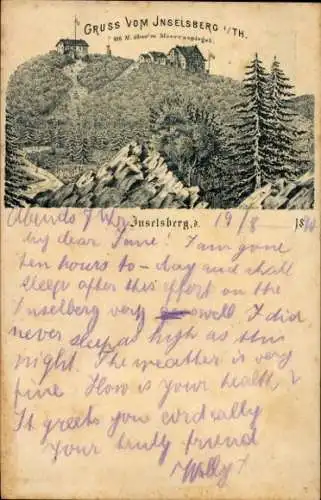 GRUSS VOM INSELSBERG I/TH.
916 M. über'm Meeresspiegel.
Abends 7 Uhr Inselsberg, d. 19/8 18
My dear Tone! I am gone
ten hours to-day and shall
sleep after this effort on the
Inselberg very well I did
never sleep as high as this
night. The weather is very
fine. How is your health?
It greets you cordially
Your truly friend
Willy